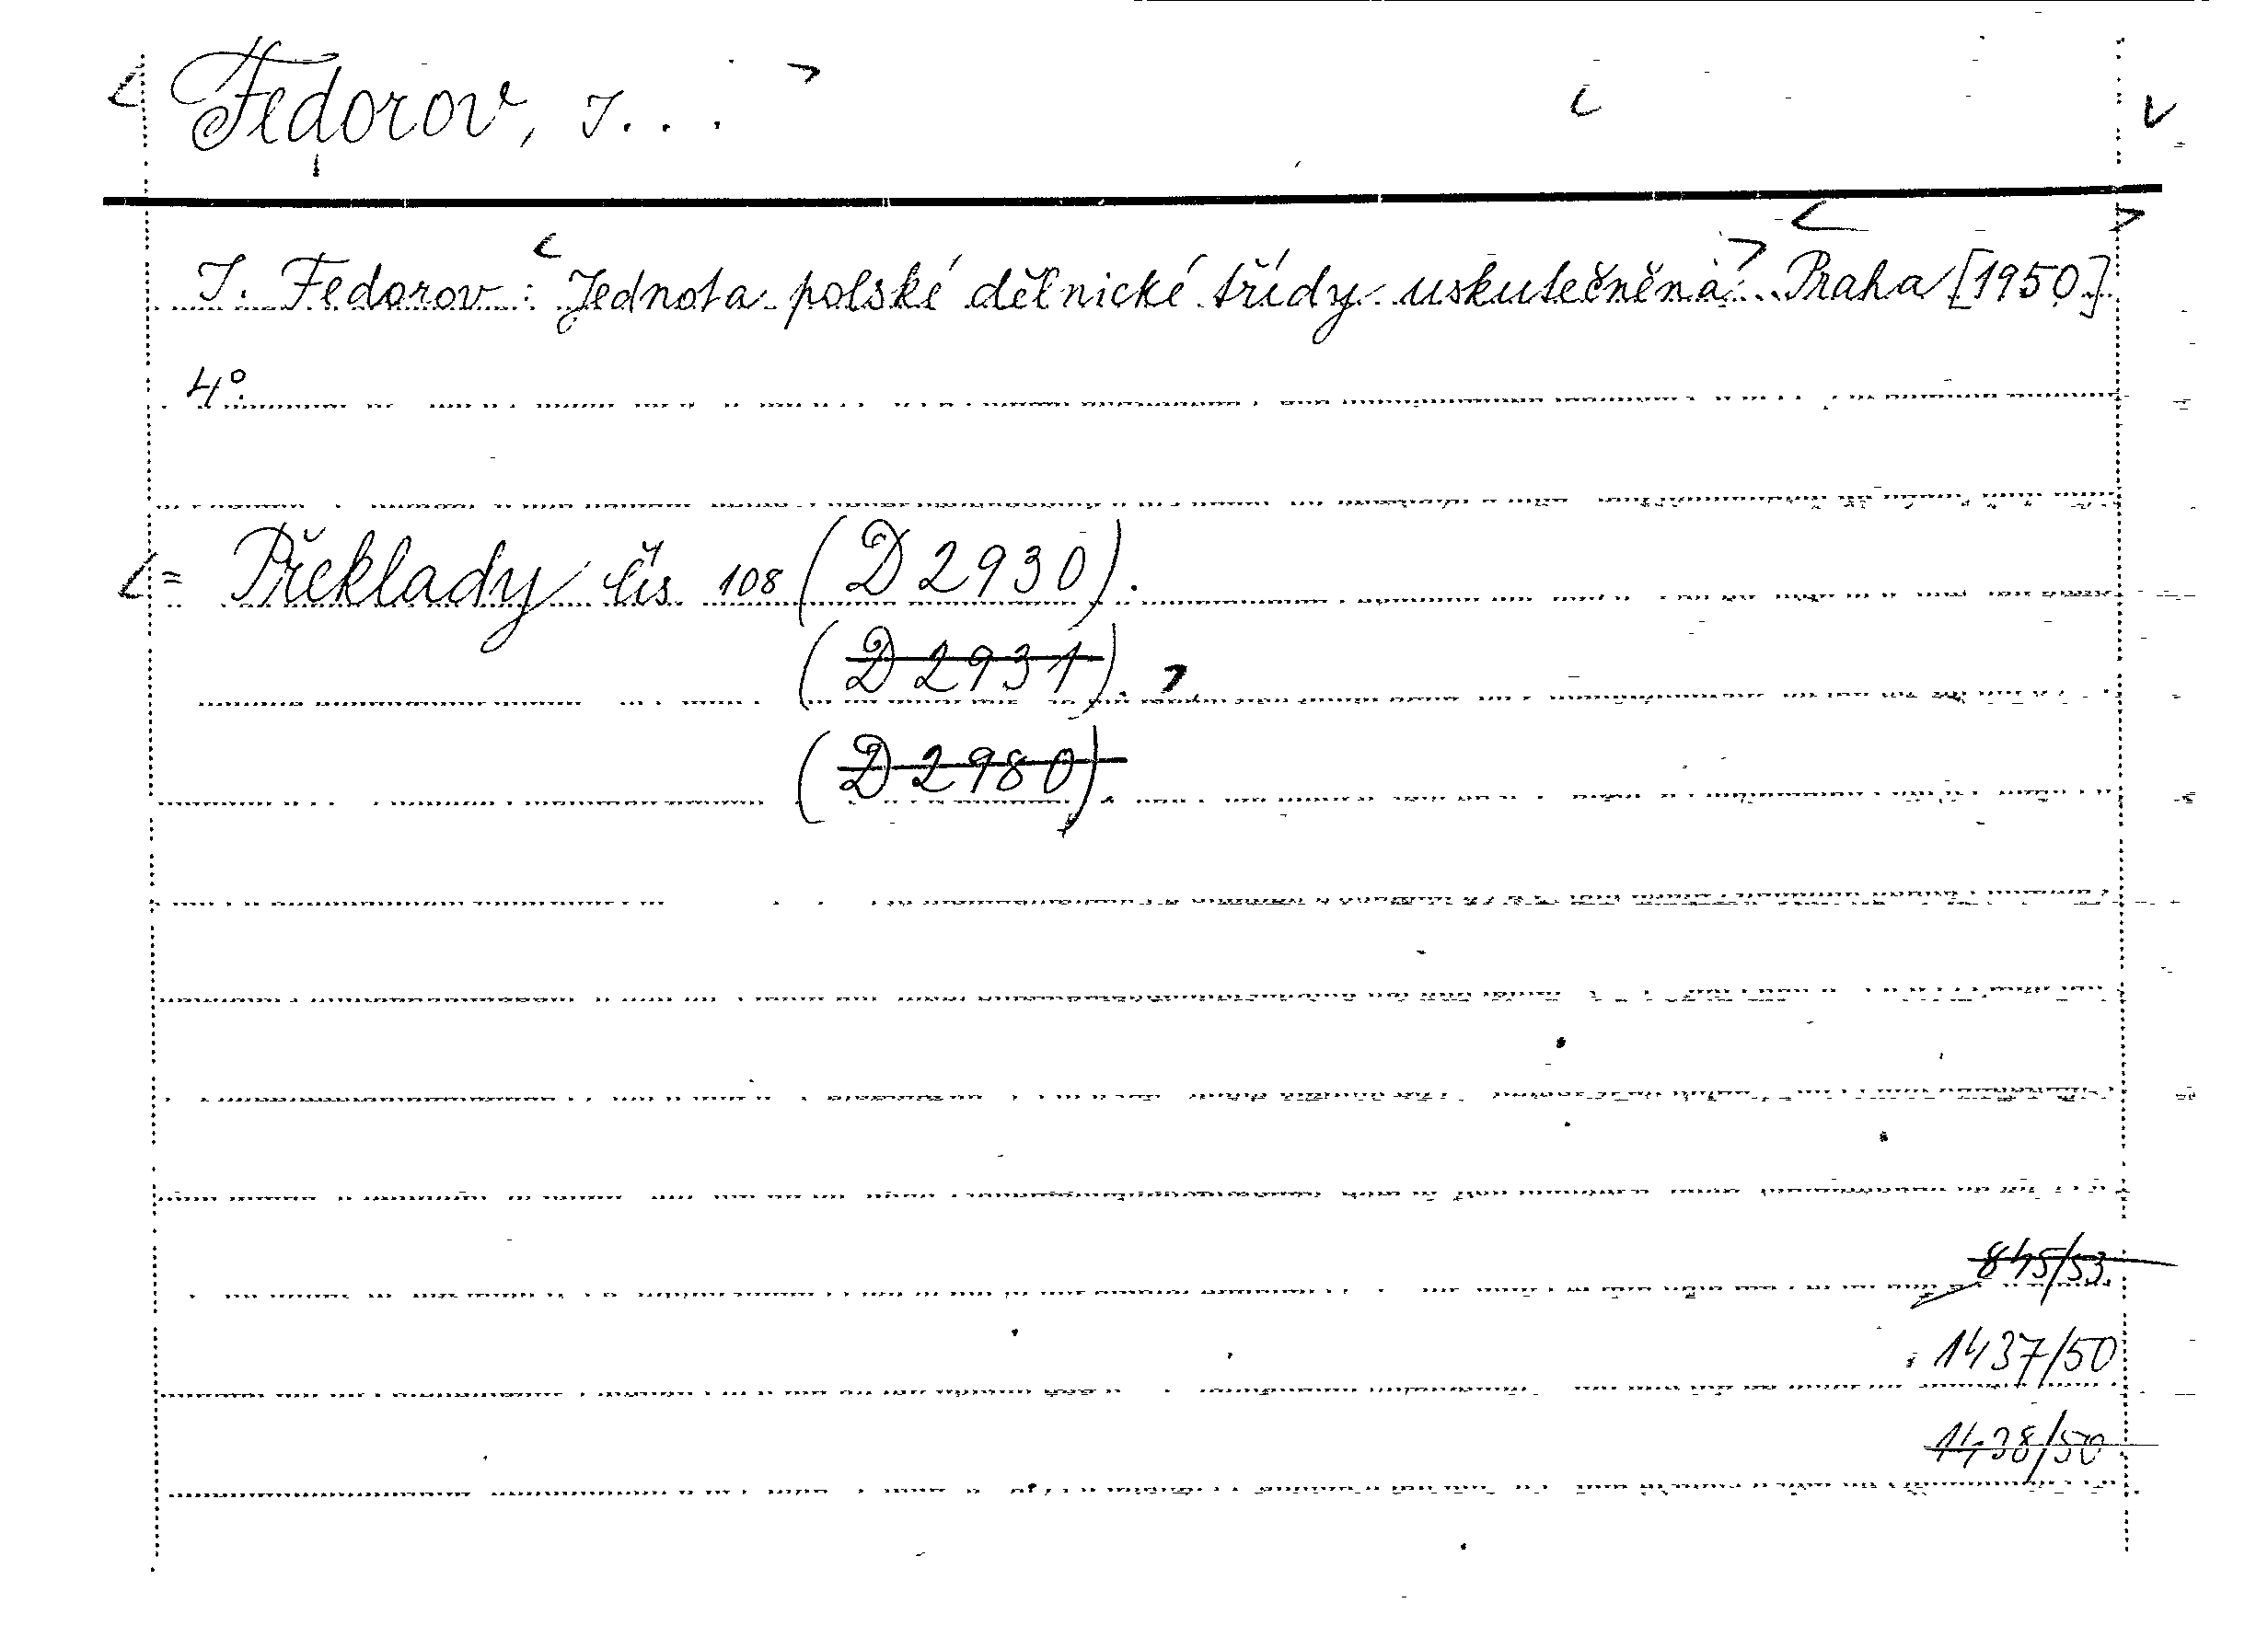 Fedorov, J...
J. Fedorov: Jednota polské dělnické třídy uskutečněná. Praha [1950]
4°.
= Překlady čís 108 (D 2930).
(D 2931).
(D 2980).
845/53
1437/50
1438/50